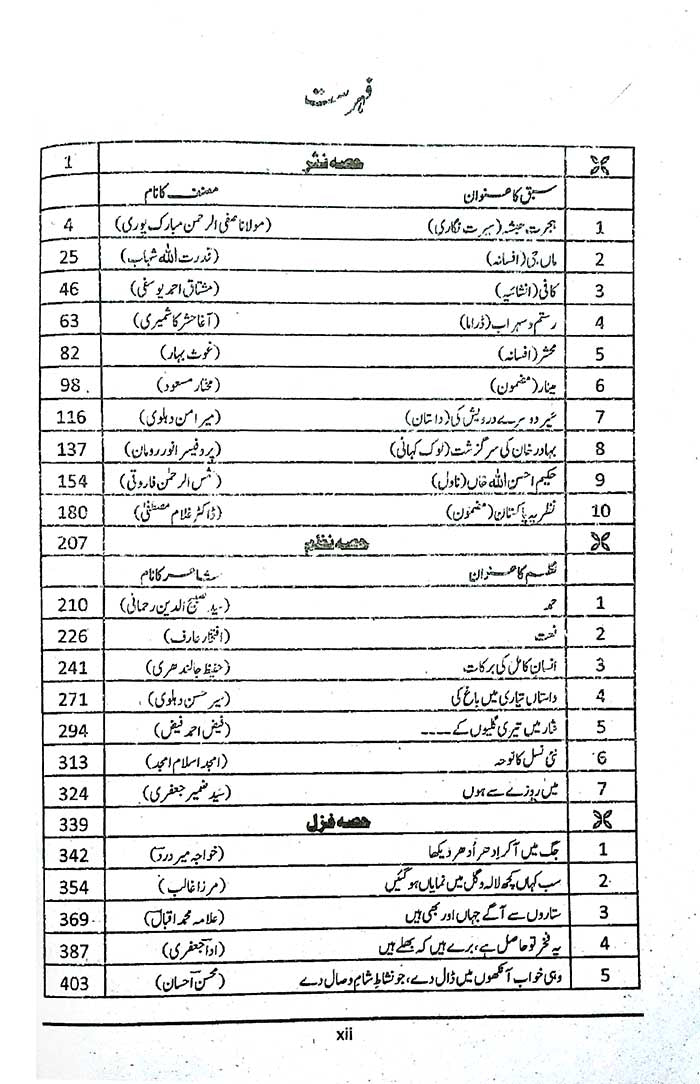 فہرست
حصہ نثر 1
سبق کا عنوان مصنف کا نام
1 ہجرت حبشہ (سیرت نگاری) (مولانا صفی الرحمن مبارک پوری) 4
2 ماں جی (افسانہ) (قدرت اللہ شہاب) 25
3 کافی (انشائیہ) (مشتاق احمد یوسفی) 46
4 رستم و سہراب (ڈراما) (آغا حشر کاشمیری) 63
5 محشر (افسانہ) (غوث بہار) 82
6 مینار (مضمون) (مختار مسعود) 98
7 سیر دوسرے درویش کی (داستان) (میر امن دہلوی) 116
8 بہادر خان کی سرگزشت (لوک کہانی) (پروفیسر انور رومان) 137
9 حکیم احسن اللہ خاں (ناول) (شمس الرحمٰن فاروقی) 154
10 نظریہ پاکستان (مضمون) (ڈاکٹر غلام مصطفیٰ) 180
حصہ نظم 207
نظم کا عنوان شاعر کا نام
1 حمد (سید صبیح الدین رحمانی) 210
2 نعت (افتخار عارف) 226
3 انسانِ کامل کی برکات (حفیظ جالندھری) 241
4 داستاں تیاری میں باغ کی (میر حسن دہلوی) 271
5 نثار میں تیری گلیوں کے ---- (فیض احمد فیض) 294
6 نئی نسل کا نوحہ (امجد اسلام امجد) 313
7 میں روزے سے ہوں (سید ضمیر جعفری) 324
حصہ غزل 339
1 جگ میں آ کر اِدھر اُدھر دیکھا (خواجہ میر درد) 342
2 سب کہاں کچھ لالہ و گل میں نمایاں ہو گئیں (مرزا غالب) 354
3 ستاروں سے آگے جہاں اور بھی ہیں (علامہ محمد اقبال) 369
4 یہ فخر تو حاصل ہے، برے ہیں کہ بھلے ہیں (ادا جعفری) 387
5 وہی خواب آنکھوں میں ڈال دے، جو نشاطِ شامِ وصال دے (محسن احسان) 403
xii